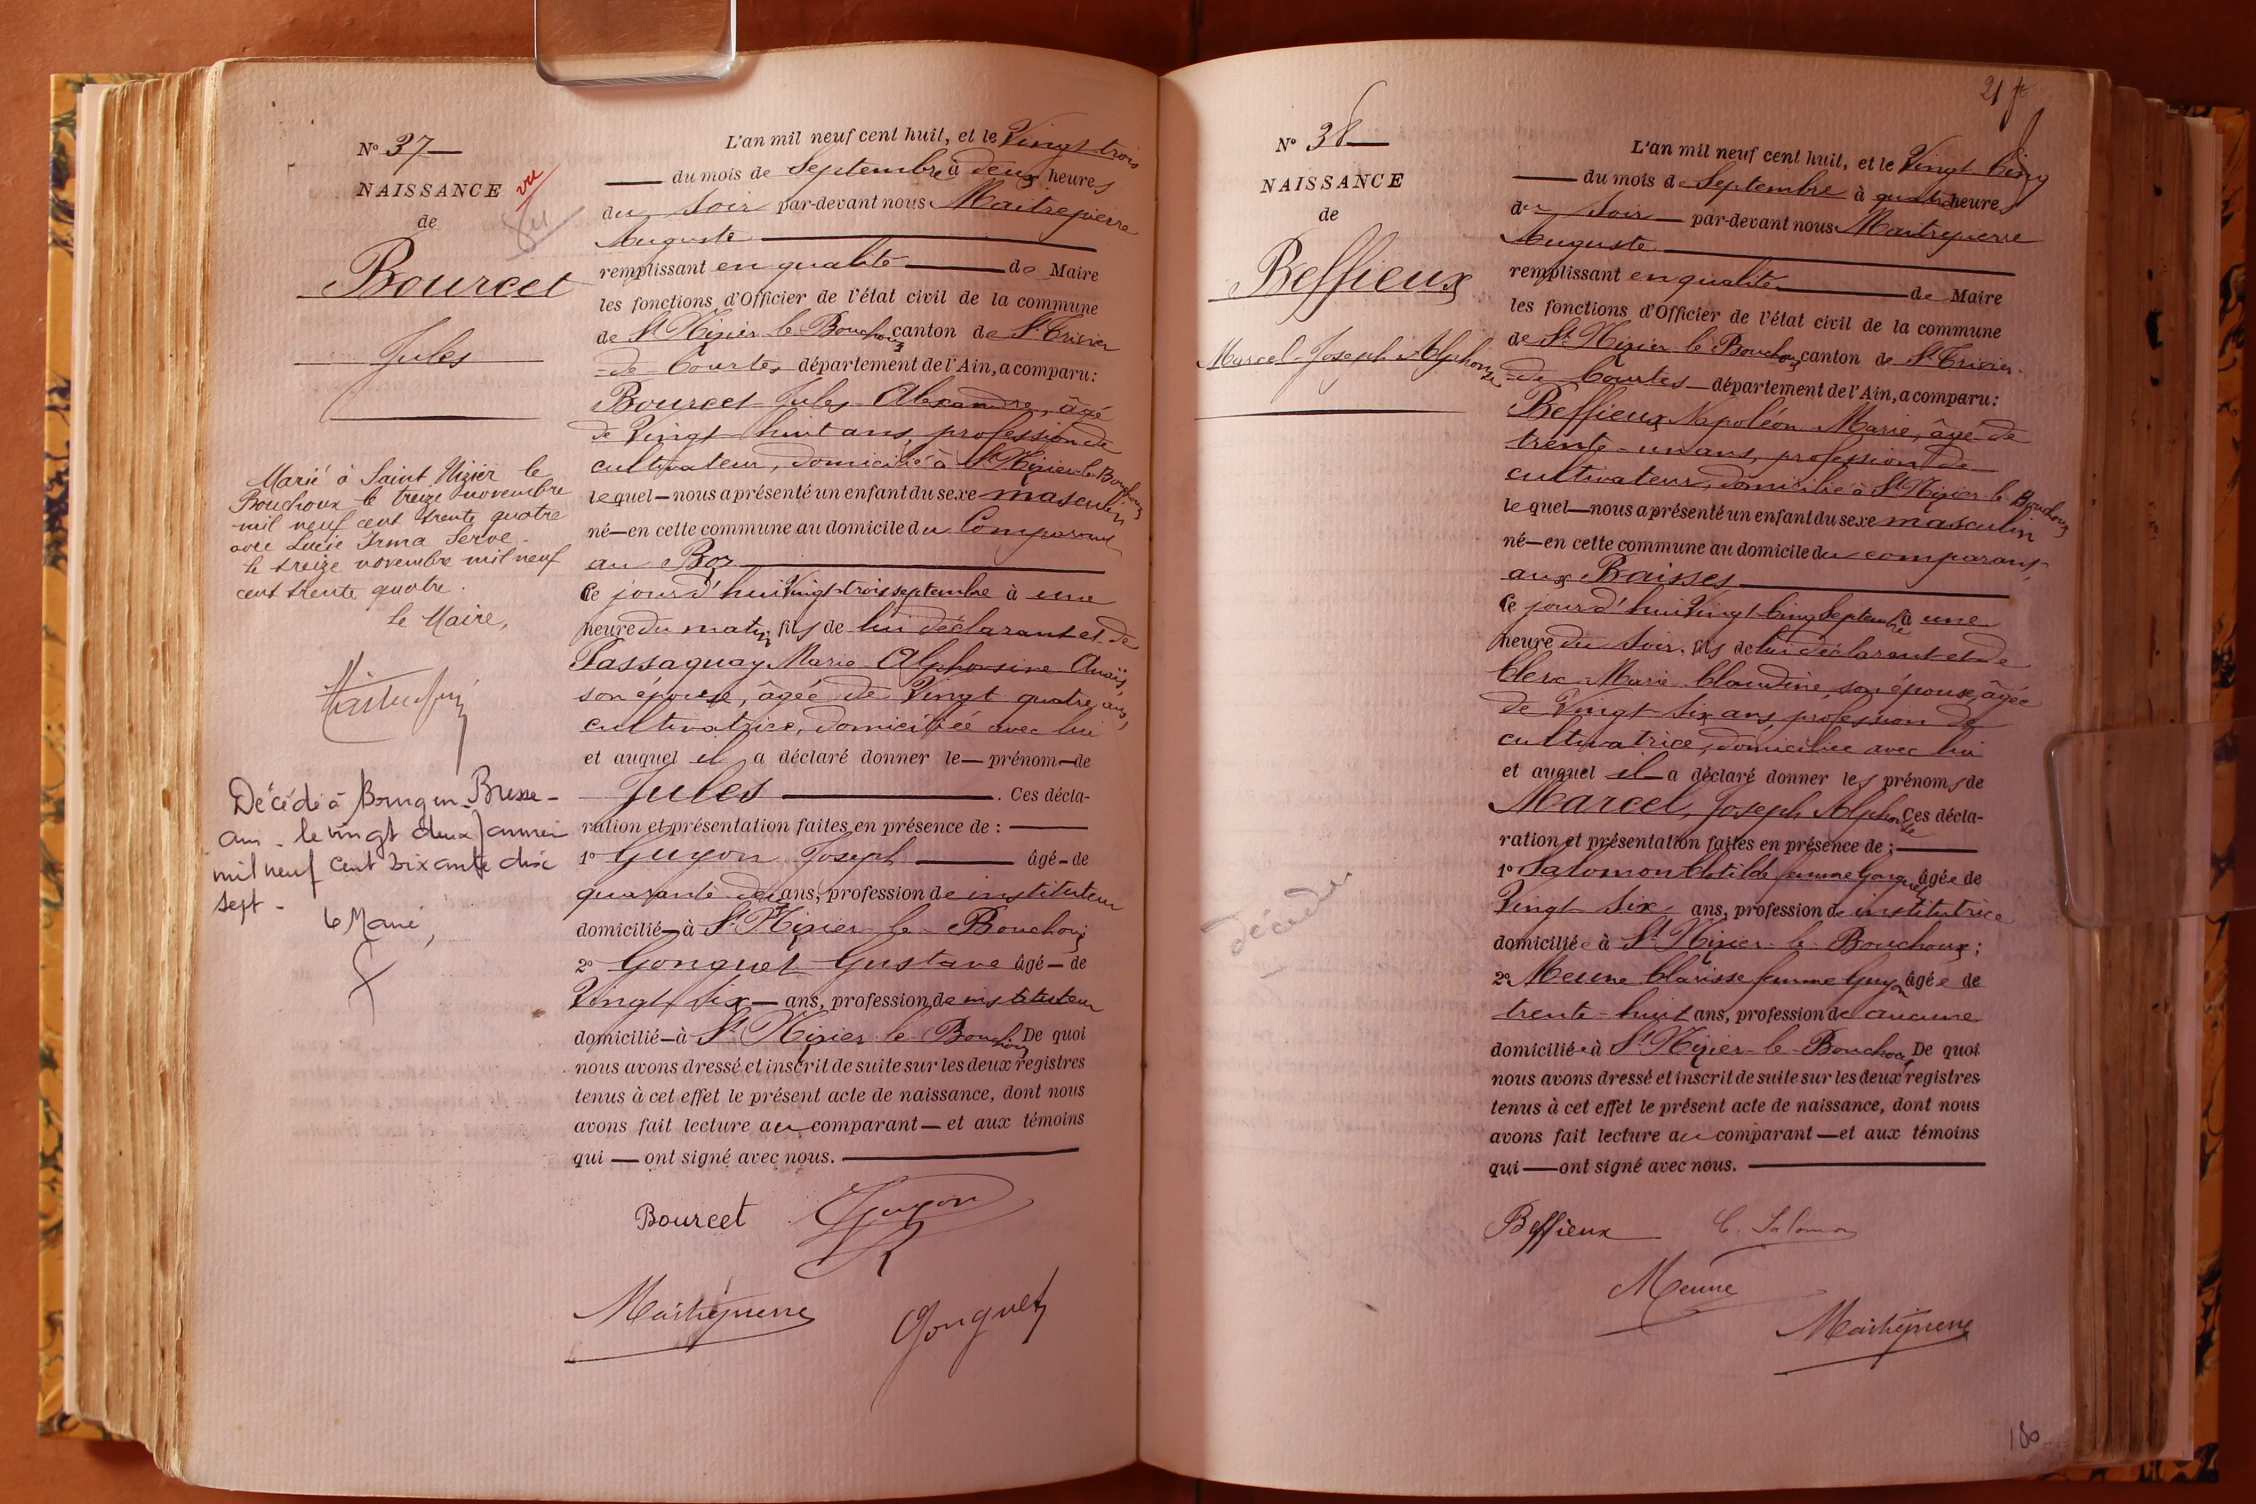 N° 37
NAISSANCE
de
vu
Bourcet
Jules
Marié à Saint Nizier le
Bouchoux le treize novembre
mil neuf cent trente quatre
avec Lucie Irma Serve.
le treize novembre mil neuf
cent trente quatre.
Le Maire,
Décédé à Bourg en Bresse -
Ain - le vingt deux Janvier
mil neuf cent soixante dix
sept -
Le Maire,
L'an mil neuf cent huit, et le Vingt trois
du mois de Septembre à deux heures
du soir par-devant nous Maitrepierre
Auguste
remplissant en qualité de Maire
les fonctions d'Officier de l'état civil de la commune
de St Nizier le Bouchoux canton de St Trivier
de Courtes département de l'Ain, a comparu:
Bourcet Jules Alexandre, âgé
de Vingt huit ans, profession de
cultivateur, domicilié à St Nizier-le-Bouchoux
lequel nous a présenté un enfant du sexe masculin
né en cette commune au domicile du Comparant
au Boz
ce jourd'hui Vingt-trois septembre à une
heure du matin, fils de lui déclarant et de
Passaquay Marie Alphonsine Anaïs,
son épouse, âgée de Vingt quatre ans,
cultivatrice, domiciliée avec lui
et auquel il a déclaré donner le prénom de
Jules. Ces décla-
ration et présentation faites en présence de :
1° Guyon Joseph âgé de
quarante deux ans, profession de instituteur
domicilié à St Nizier le Bouchoux ;
2° Gonguet Gustave âgé de
Vingt six ans, profession de instituteur
domicilié à St Nizier le Bouchoux De quoi
nous avons dressé et inscrit de suite sur les deux registres
tenus à cet effet le présent acte de naissance, dont nous
avons fait lecture au comparant et aux témoins
qui ont signé avec nous.
Bourcet Guyon
Maitrepierre Gonguet
21 ft
N° 38
NAISSANCE
de
Beffieux
Marcel Joseph Alphonse
décédé
L'an mil neuf cent huit, et le Vingt Cinq
du mois de Septembre à quatre heures
du soir par-devant nous Maitrepierre
Auguste
remplissant en qualité de Maire
les fonctions d'Officier de l'état civil de la commune
de St Nizier le Bouchoux canton de St Trivier
de Courtes département de l'Ain, a comparu:
Beffieux Napoléon Marie, âgé de
trente-un ans, profession de
cultivateur, domicilié à St Nizier-le-Bouchoux
lequel nous a présenté un enfant du sexe masculin
né en cette commune au domicile du comparant,
aux Baisses
ce jourd'hui Vingt Cinq Septembre à une
heure du soir, fils de lui déclarant et de
Clerc Marie Claudine, son épouse, âgée
de Vingt Six ans, profession de
cultivatrice, domiciliée avec lui
et auquel il a déclaré donner les prénoms de
Marcel, Joseph Alphonse Ces décla-
ration et présentation faites en présence de :
1° Salomon Clotilde femme Gonguet âgée de
Vingt Six ans, profession de institutrice
domiciliée à St Nizier-le-Bouchoux ;
2° Meune Clarisse femme Guyon âgée de
trente-huit ans, profession de aucune
domiciliée à St Nizier-le-Bouchoux De quoi
nous avons dressé et inscrit de suite sur les deux registres
tenus à cet effet le présent acte de naissance, dont nous
avons fait lecture au comparant et aux témoins
qui ont signé avec nous.
Beffieux C. Salomon
Meune
Maitrepierre
180